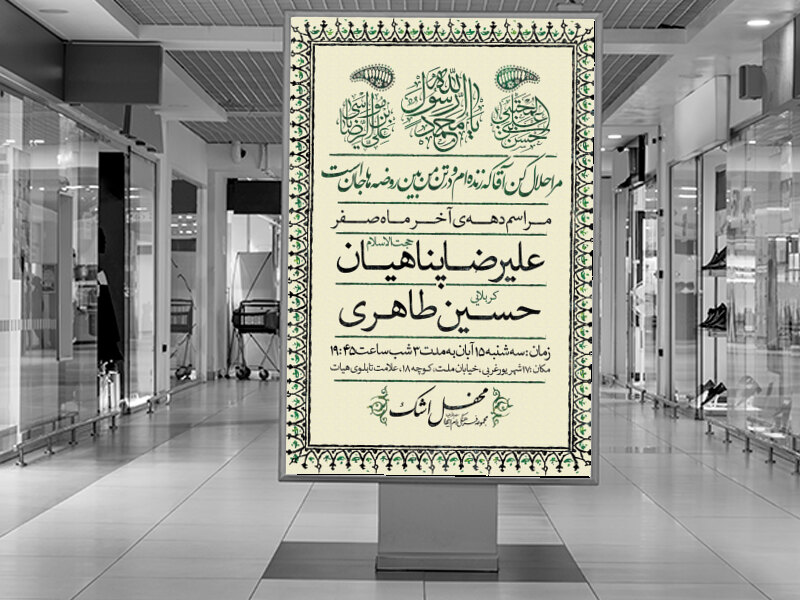 یا محمد رسول الله
یا حسن بن علی المجتبی
یا علی بن موسی الرضا
مرا حلال کن آقا که زنده ام و در تن من بین روضه ها جان است
مراسم دهه ی آخر ماه صفر
حجت الاسلام
علیرضا پناهیان
کربلایی
حسین طاهری
زمان: سه شنبه ۱۵ آبان به مدت ۳ شب ساعت ۱۹:۴۵
مکان: ۱۷ شهریور غربی، خیابان ملت، کوچه ۱۸، علامت تابلوی هیات
محفل اشک